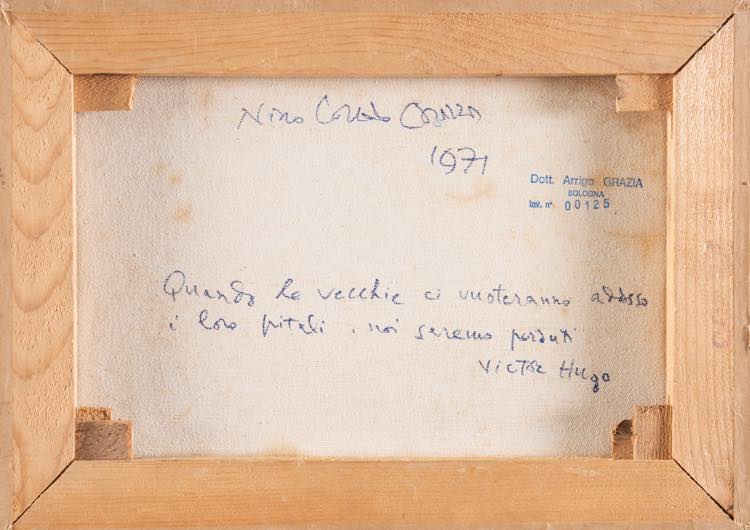 Nino Corrado Corazza
1971
Dott. Arrigo GRAZIA
BOLOGNA
Inv. n° 00125
Quando le vecchie ci vuoteranno addosso
i loro pitali, noi saremo perduti
Victor Hugo